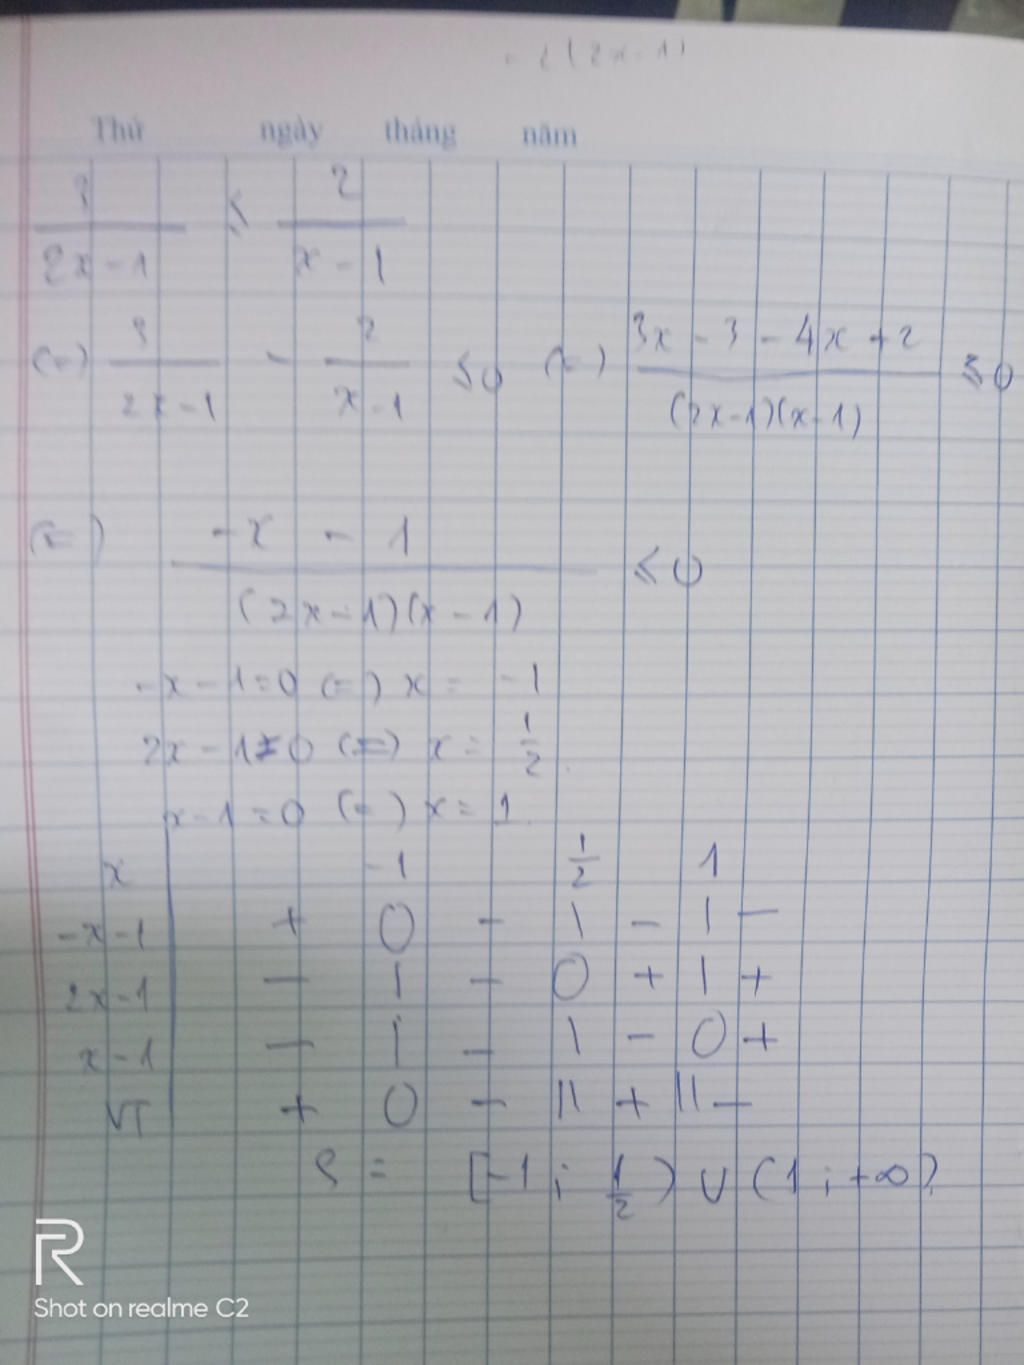 - 2(2x-1)
Thứ ngày tháng năm
3/(2x-1) ≤ 2/(x-1)
(=) 3/(2x-1) - 2/(x-1) ≤ 0 (=) (3x-3-4x+2)/((2x-1)(x-1)) ≤ 0
(=) (-x-1)/((2x-1)(x-1)) ≤ 0
-x-1=0 (=) x = -1
2x-1=0 (=) x = 1/2.
x-1=0 (=) x = 1.
x -1 1/2 1
-x-1 + 0 - | - | -
2x-1 - | - 0 + | +
x-1 - | - | - 0 +
VT + 0 - || + || -
S = [-1; 1/2) ∪ (1; +∞)
R
Shot on realme C2